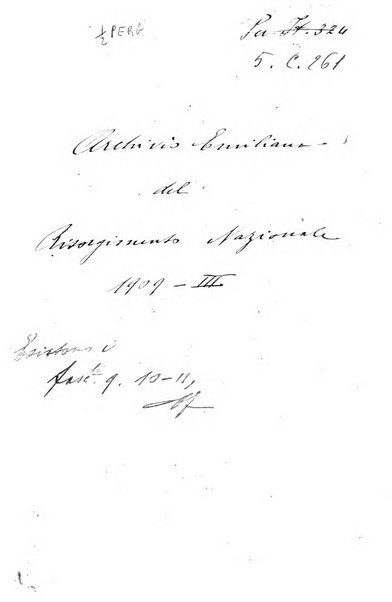 ½ PER.
Per It. 324
5. C. 261
Archivio Emiliano
del
Risorgimento Nazionale
1909 - III
Esistono i
fasc.li 9. 10-11,